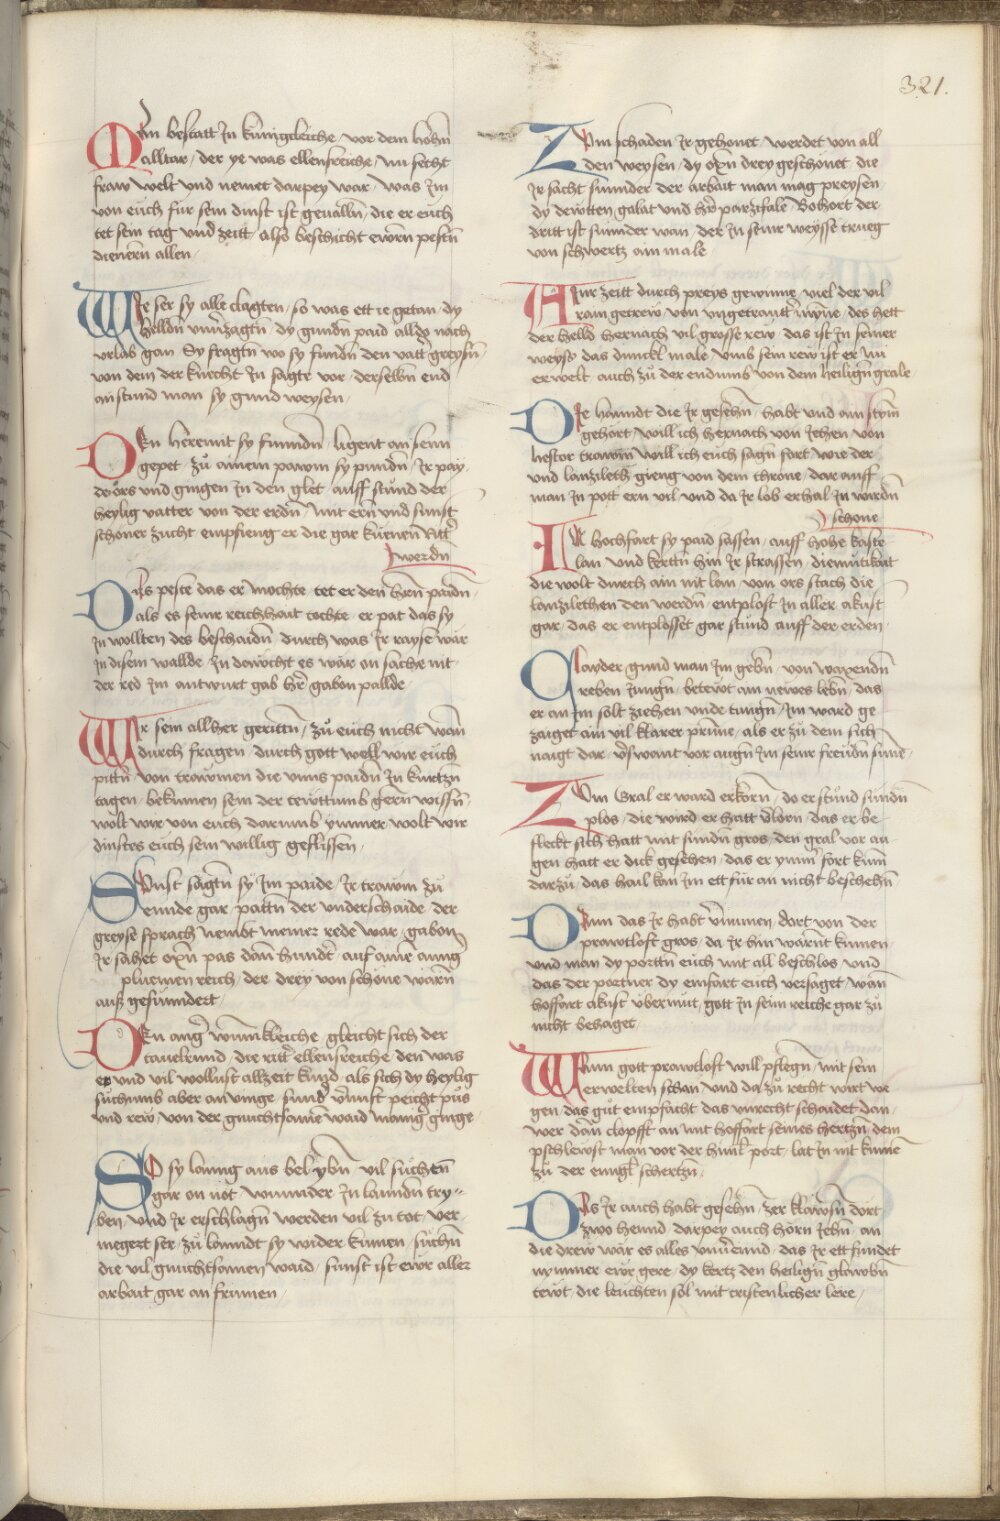 321.
Man bestatt Jn kunigcleiche vor dem hohñ
alltar / der ye was ellensreiche / nu secht
fraw welt und nemet darpey war / was Jm
von euch fur sein dinst ist geualln / die er euch
tet sein tag vnd zeitt / also beschicht ewrn pestñ
dienern allen /
Wie ser sy alle clagten / so was ett ie getan / dy
helldñ vnuerzagtñ / dy gundñ paid alldo nach
vrlab gan / Sy fragtñ wo sy fundñ den vatr̃ greysñ
von dem der knecht Jn sagte vor / derselbñ end
an stund man sy gund weysen /
Den herennt sy funndñ / ligent an seim
gepet / zů ainem pawm sy pundñ / Jr pay
de ors und gingen Jn den glet / auff stund der
heylig vatter von der erdñ / mit ern und sunst
schoner zucht empfieng er die gar kuenen Ritr̃
werdñ
Als peste das er mochte / tet er den hern̄ paidñ
als es seinr reichhait tochte / er pat das sy
Jn wollten des beschaidñ / durch was Jr rayse wär
Jn disem wallde / Jn deücht es wär on sache nit
der red Jm antwurt gab her̃ gabon pallde /
Wir sein allher gerittñ / zů euch nicht wañ
durch fragen / durch gott well wir euch
pittñ von trawmen die vnns paidñ Jn kurtzñ
tagen / bekumen sein der tewttumb gern̄ wissñ
wolt wir von euch darumb ymmer wolt wir
dinstes euch sein willig geflissen /
Sunst sagtñ sy Jm paide / Jr trawm zů
ennde gar / pattñ der vnderschaide / der
greyse sprach nembt meiner rede war / gabon
Jr sahet oxñ pas dañ hundert / auf ainr anng
pluemen reich / der drey von schone warñ
aus gesunndert /
Den anger wunnkleiche / gleicht sich der
tauelrund / die ritr̃ ellensreiche / den was
er und vil wollust allzeit kund / als sich dy heylig
sůchumb aber an vinge / sund vernuft peicht pus
vnd rew / von der gnuchtsamē waid maniger ginge
So sy lanng aus belybñ / vil sůchten
gar on not / wunnder Jn lanndñ try„
ben / vnd Jr erschlagñ werden vil zu tot / ver
megert ser / zů lanndt sy wider kumen / sůchñ
die vil gnuchtsamen waid / sunst ist ewr aller
arbait gar an frumen /
Zum schaden Jr gehonet / werdet von all
den weysen / dy oxñ drey geschonet / die
Jr sacht sunnder der arbait man mag preysen
dy dewtten galat vnd her̃ parzifale / Bohort der
dritt ist sunnder wan / der Jn seinr weysse trueg
von schwertz ain male
Ainr zeitt durch preys gewinne / viel der vil
rain getrew / von vngetrautr̃ mynne / des hett
der helld hernach vil grosse rew / das ist Jn seiner
weyss das dunckl male / vmb sein rew ist er nu
erwelt / auch zů der endumb von dem heiligñ grale
Die hanndt die Jr gesehñ / habt vnd ain stym̄
gehort / will ich hernach von Jehen / von
hestor trawm̄ will ich euch sagñ fort / wie der
vnd lanzileth gieng von dem throne / dar auff
man Jn pott ern vil / vnd da Jr lob erhal Jn wirdñ
schone
In hochfart sy paid sassen / auff hohe kaste
lan / vnd kertñ hin Jr strassen / diemütikait
die wolt durch ain nit lan / von ors stach die
lanzilethen den werdñ / entplost Jn aller akust
gar / das er entplosset gar stund auff der erden /
Claider gund man Jm gebñ / von waxendñ
reben Jungñ / betewt ain newes lebñ / das
er an Jm solt ziehen vnde tungñ / Jm ward ge
zaiget ain vil klarer prunne / als er zů dem sich
naigt dar / verswant vor augñ Jm seinr freudñ sunne /
Zum Gral er ward erkorñ / do er stůnd sundñ
plos / die wird er hatt verlorn / das er be
fleckt sich hatt mit sundñ gros / den gral vor au
gen hatt er dick gesehen / das er ymm̄ fort kum
darzů / das hail kan Jm ett fur an nicht beschehñ
Dann das Jr habt vernumen / dort von der
prawtloft gros / da Jr hin wärnt kumen
vnd man dy porttñ euch mit all beschlos / vnd
das der portner dy einfart euch versaget / wañ
hoffart akust vbermut / gott Jn seim reiche gar zů
nicht behaget
Wann gott prawtloft will pflegñ / mit sein
erwelten schan / vnd da zů recht wirt we
gen / das gůt empfacht das vnrecht schaidet dan /
wer dañ clopfft an mit hoffart seines hertzñ / dem
pschlewst man vor der himl port / lat Jn nit kumē
zů der ennglr̃ schertzñ /
Als Jr auch habt gesehñ / zer klawsñ dort
zwo hennd / darpey auch horn Jehñ / an
die drew wär es alles vnuerennd / das Jr ett fundet
nymmer ewr gere / dy kertz den heiligñ glawbñ
tewt / die leuchten sol mit cristenlicher lere /